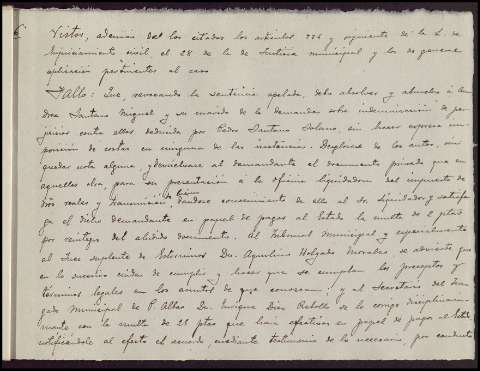 Vistos, además de los citados los artículos 336 y siguiente de la L. de
Enjuiciamiento civil, el 28 de la de Justicia municipal y los de general
aplicación pertinentes al caso
Fallo: Que, revocando la sentencia apelada, debo absolver y absuelvo á An
drea Santano Miguel y su marido de la demanda sobre indemnización de per
juicios contra ellos deducida por Pedro Santano Solano, sin hacer expresa im
posición de costas en ninguna de las instancias. Desglósese de los autos, sin
quedar nota alguna, y devuélvase al demandante el documento privado que en
aquellos obra, para su presentación á la oficina liquidadora del impuesto de
dros reales y transmisión, dándose conocimiento de ello al Sr. Liquidador y satisfa
ga el dicho demandante en papel de pagos al Estado la multa de 2 ptas
por reintegro del aludido documento. Al Tribunal municipal, y especialmente
al Juez suplente de Dn. Agustino Holgado Morales, se advierte que
en lo sucesivo cuiden de cumplir y hacer que se cumplan los preceptos y
términos legales en los asuntos de que conozcan; y al Secretario del Juz
gado Municipal de P. Altas Dn. Enrique Díez Rebollo se le corrige disciplinaria
mente con la multa de 25 ptas que hará efectivas en papel de pagos al Estado
notificándole al efecto el acuerdo, mediante testimonio de lo necesario, por conducto